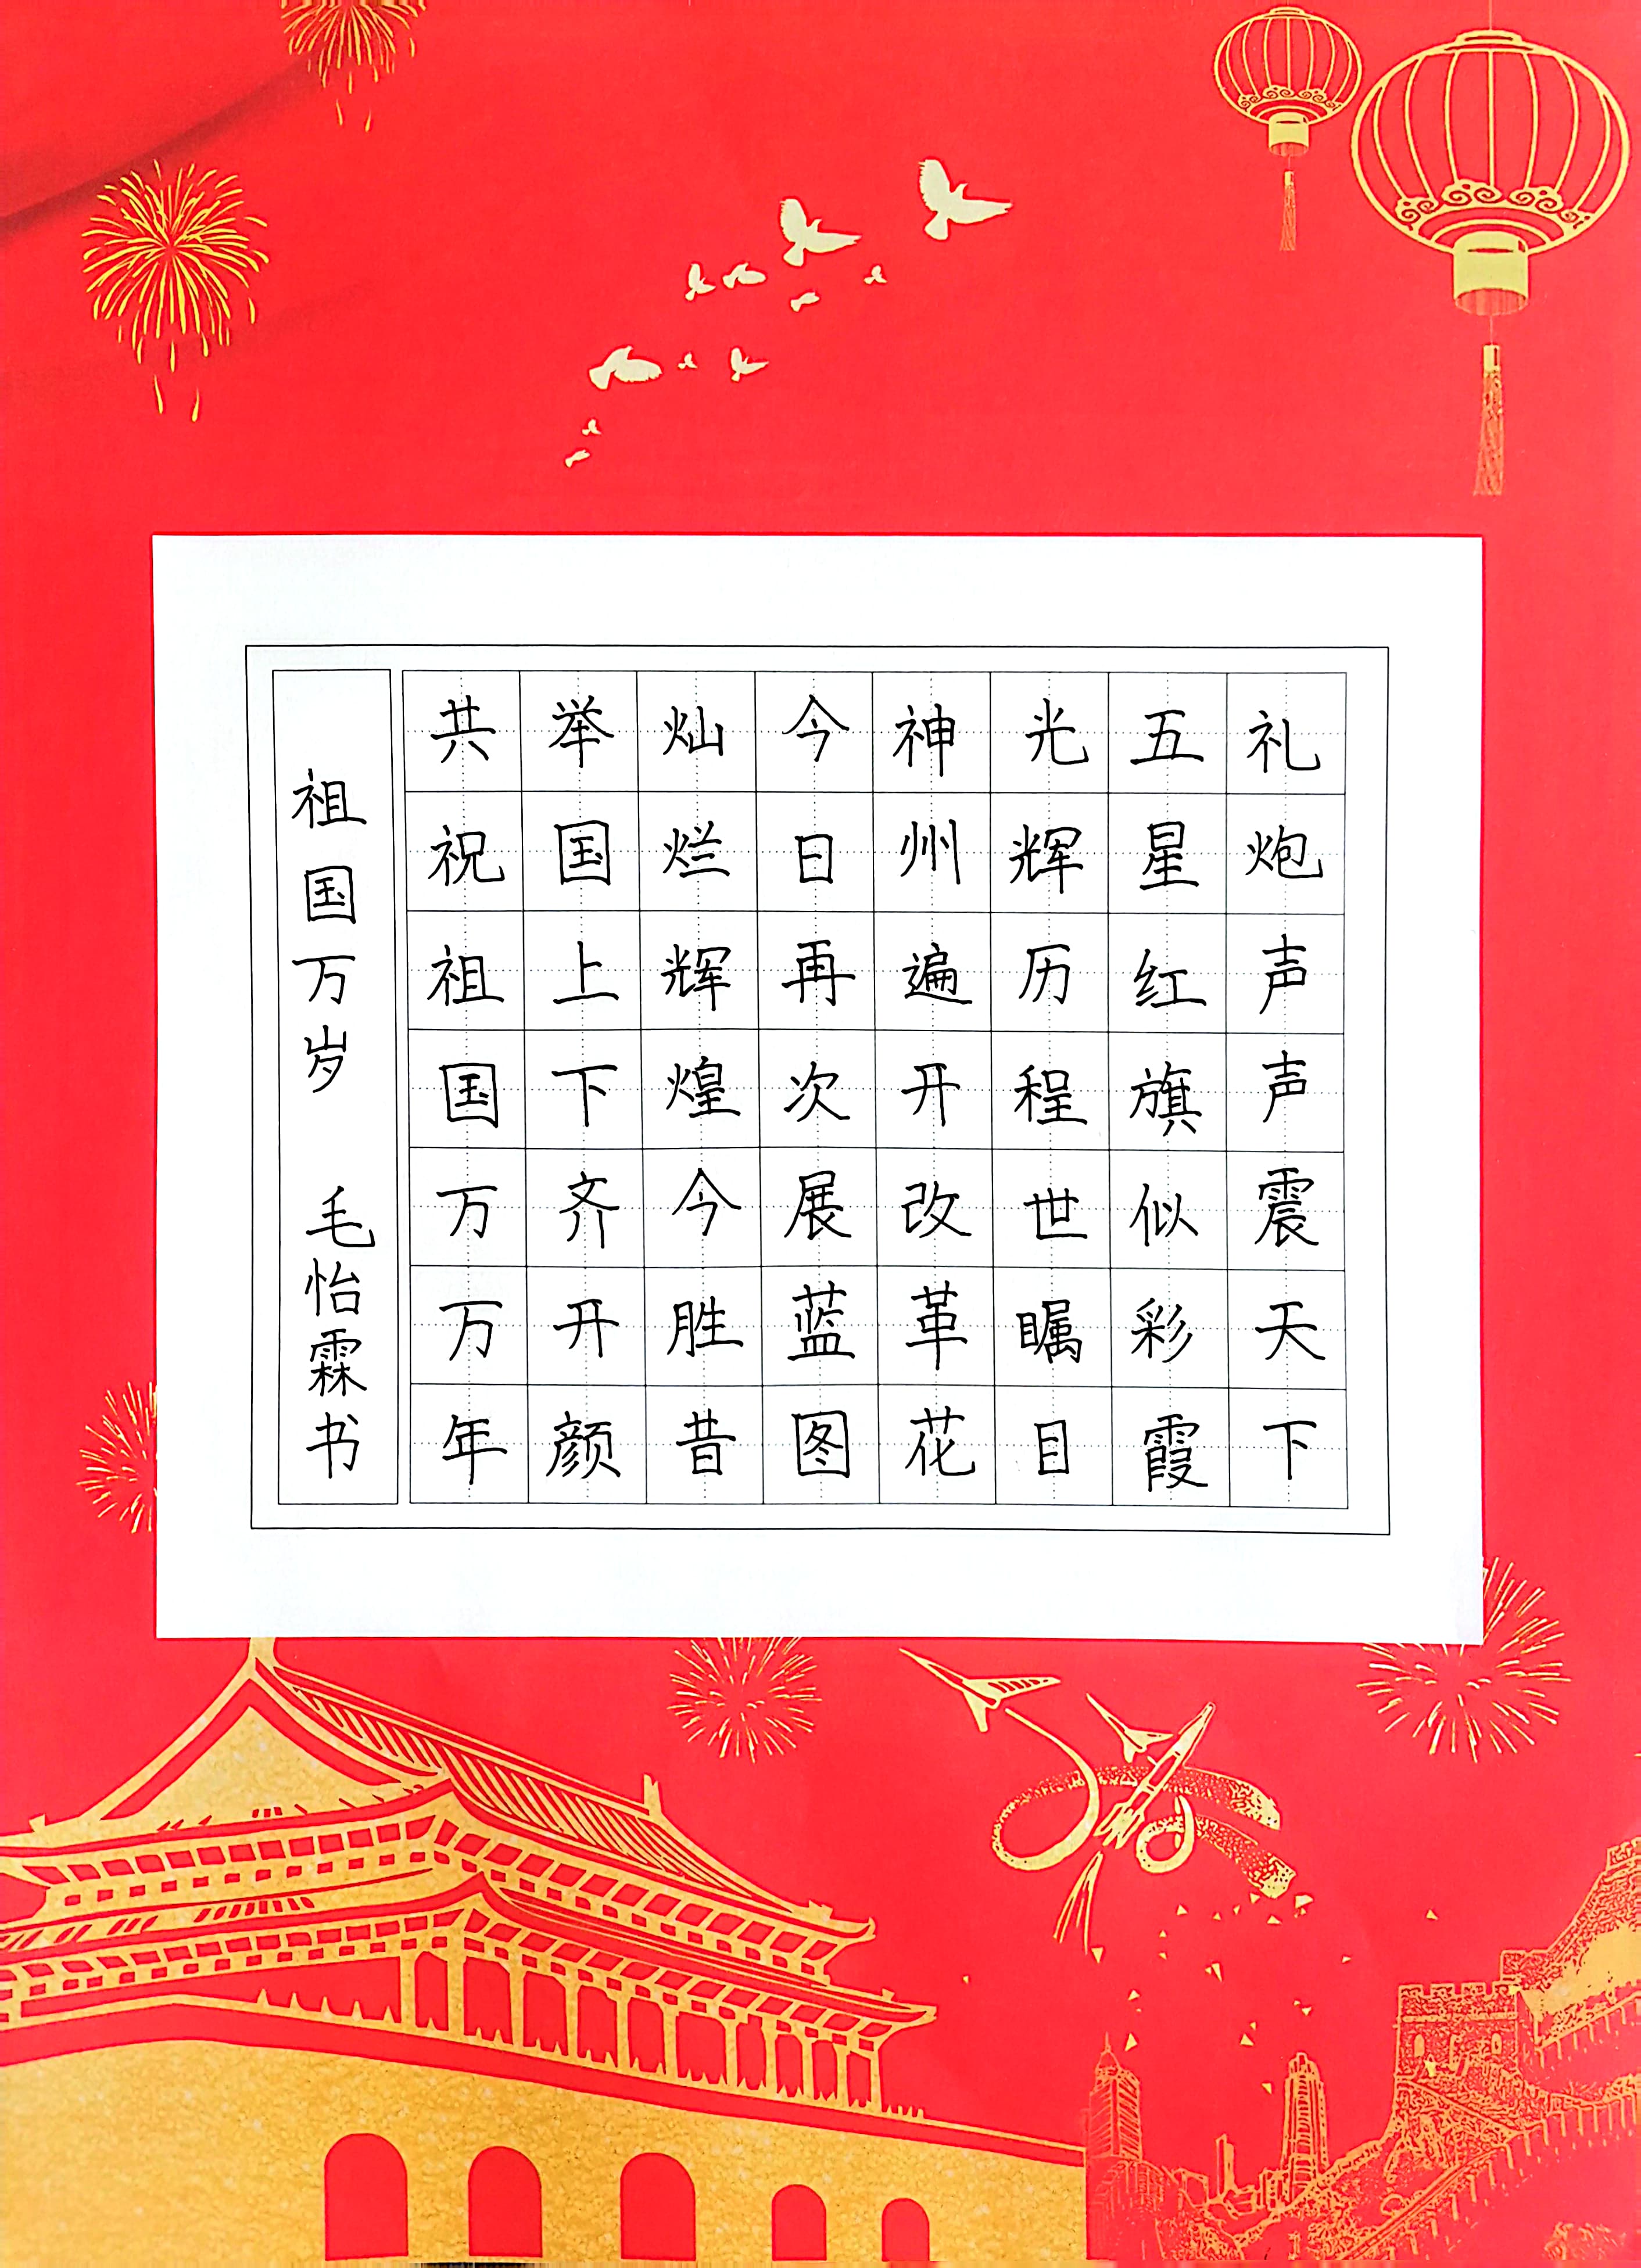 礼炮声声震天下
五星红旗似彩霞
光辉历程世瞩目
神州遍开改革花
今日再次展蓝图
灿烂辉煌今胜昔
举国上下齐开颜
共祝祖国万万年
祖国万岁 毛怡霖书